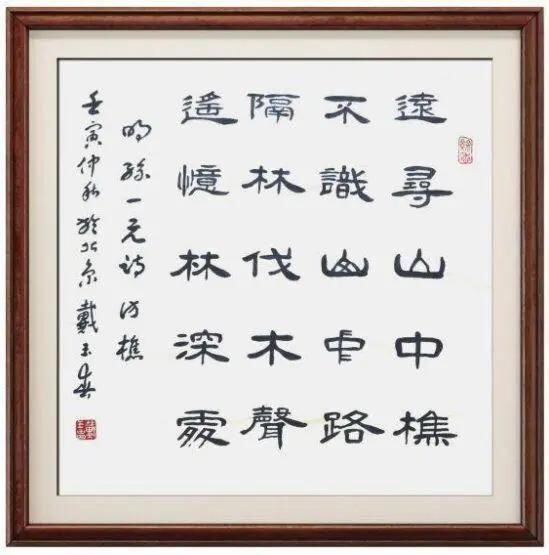 遠尋山中樵
不識山中路
隔林伐木聲
遙憶林深處
明孫一元詩 访樵
壬寅仲秋於北京戴玉